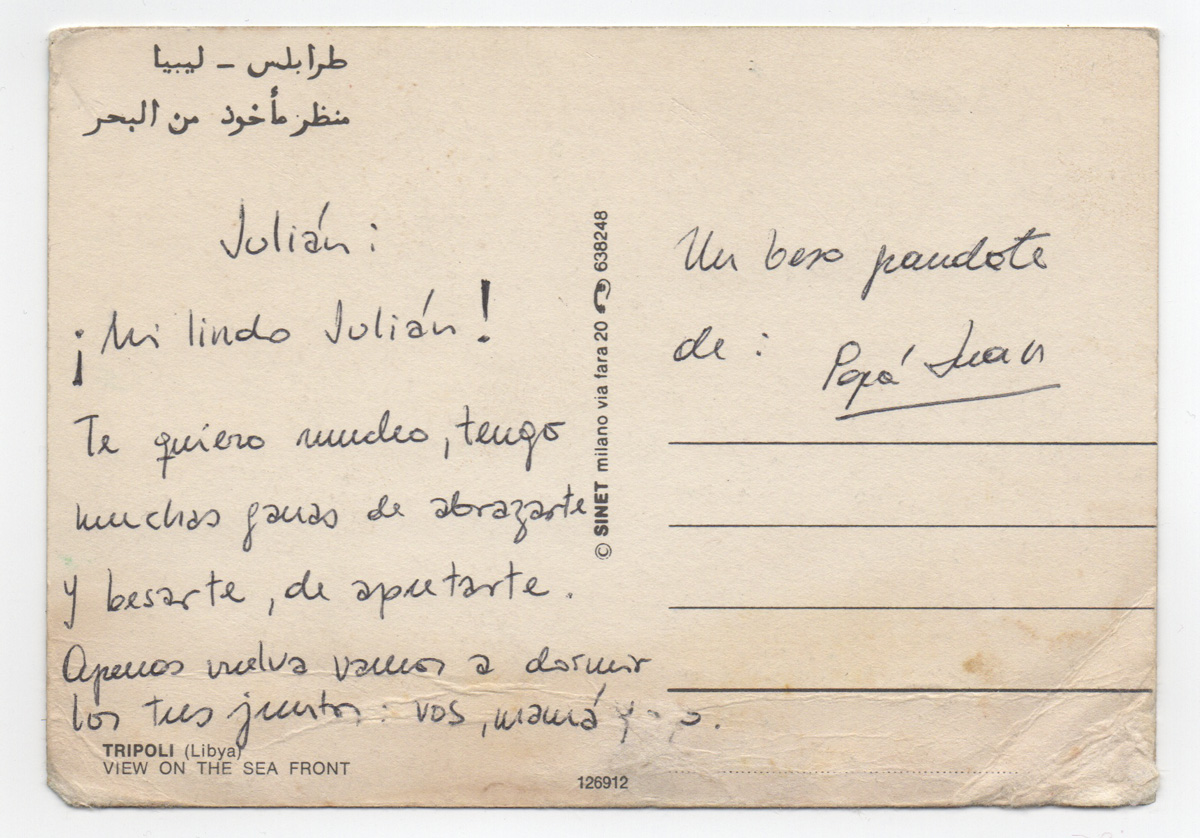 طرابلس - ليبيا
منظر مأخوذ من البحر
Julián:
¡Mi lindo Julián!
Te quiero mucho, tengo
muchas ganas de abrazarte
y besarte, de apretarte.
Apenas vuelva vamos a dormir
los tres juntos: vos, mamá y
TRIPOLI (Libya)
VIEW ON THE SEA FRONT
126912
© SINET milano via fara 20 638248
Un beso grandote
de: Papá Juan